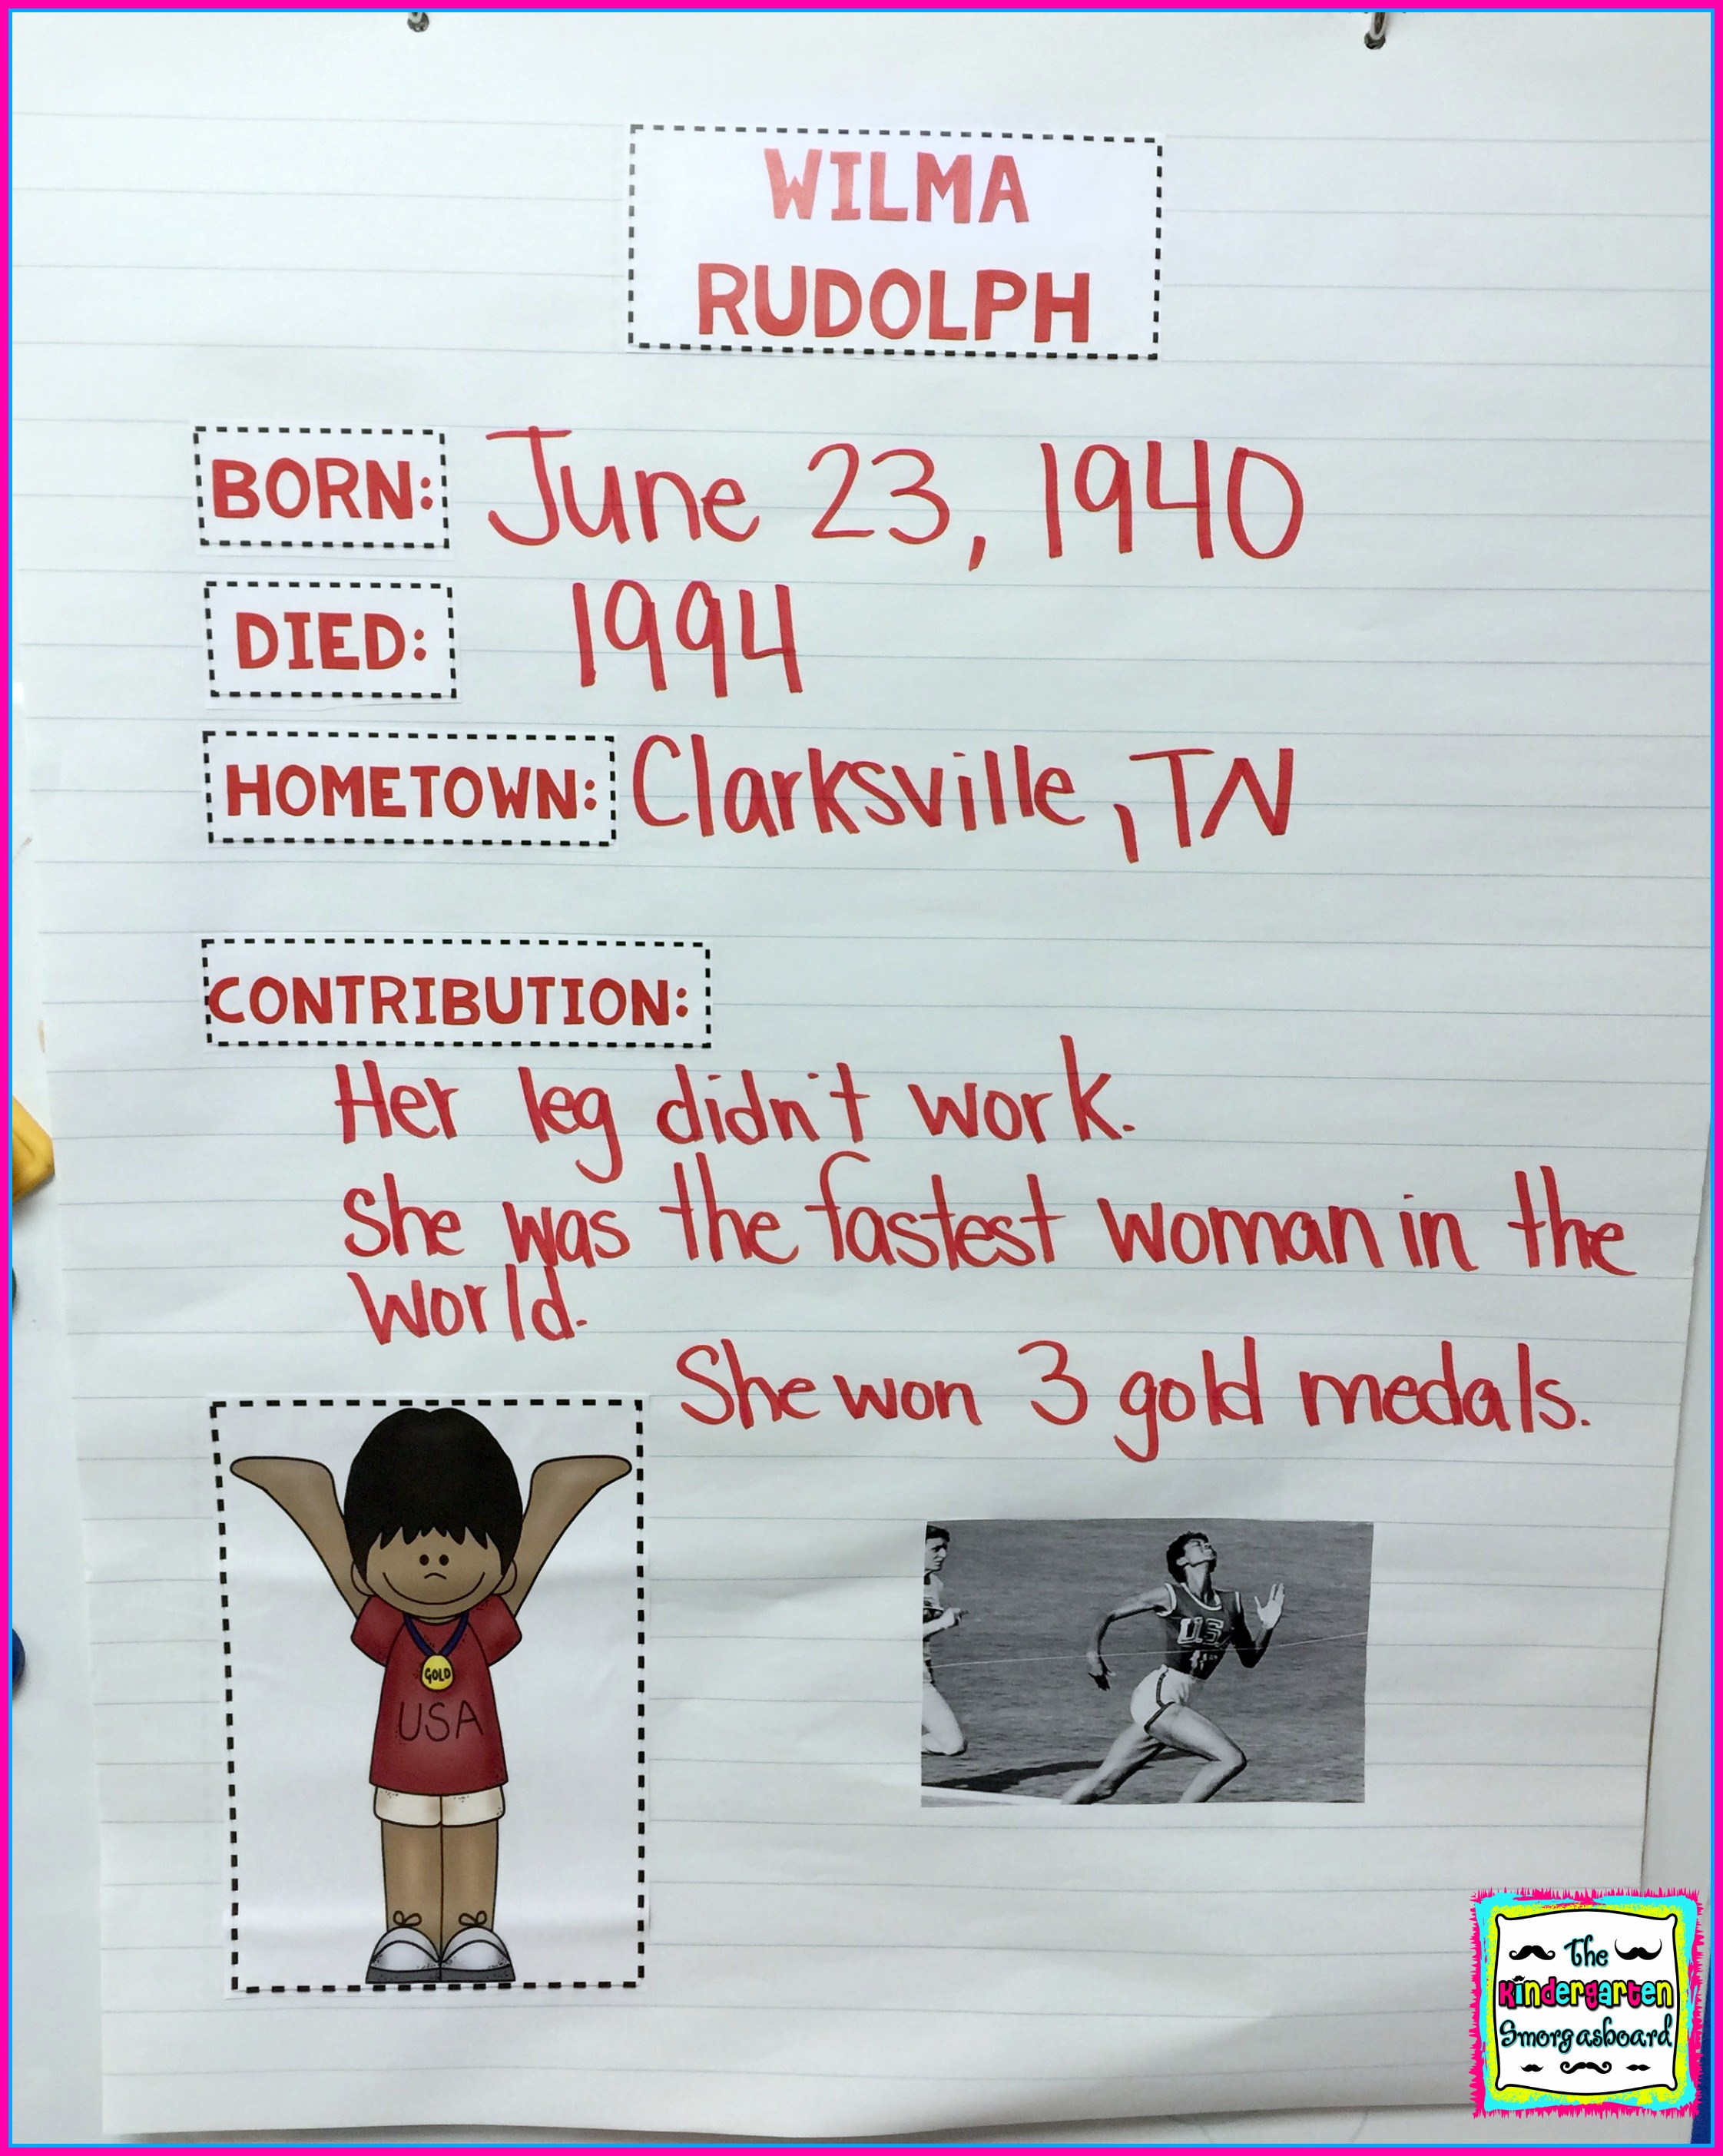 WILMA
RUDOLPH
BORN: June 23, 1940
DIED: 1994
HOMETOWN: Clarksville, TN
CONTRIBUTION:
Her leg didn't work.
She was the fastest woman in the
world.
She won 3 gold medals.
GOLD
USA
U.S.
The
Kindergarten
Smorgasboard